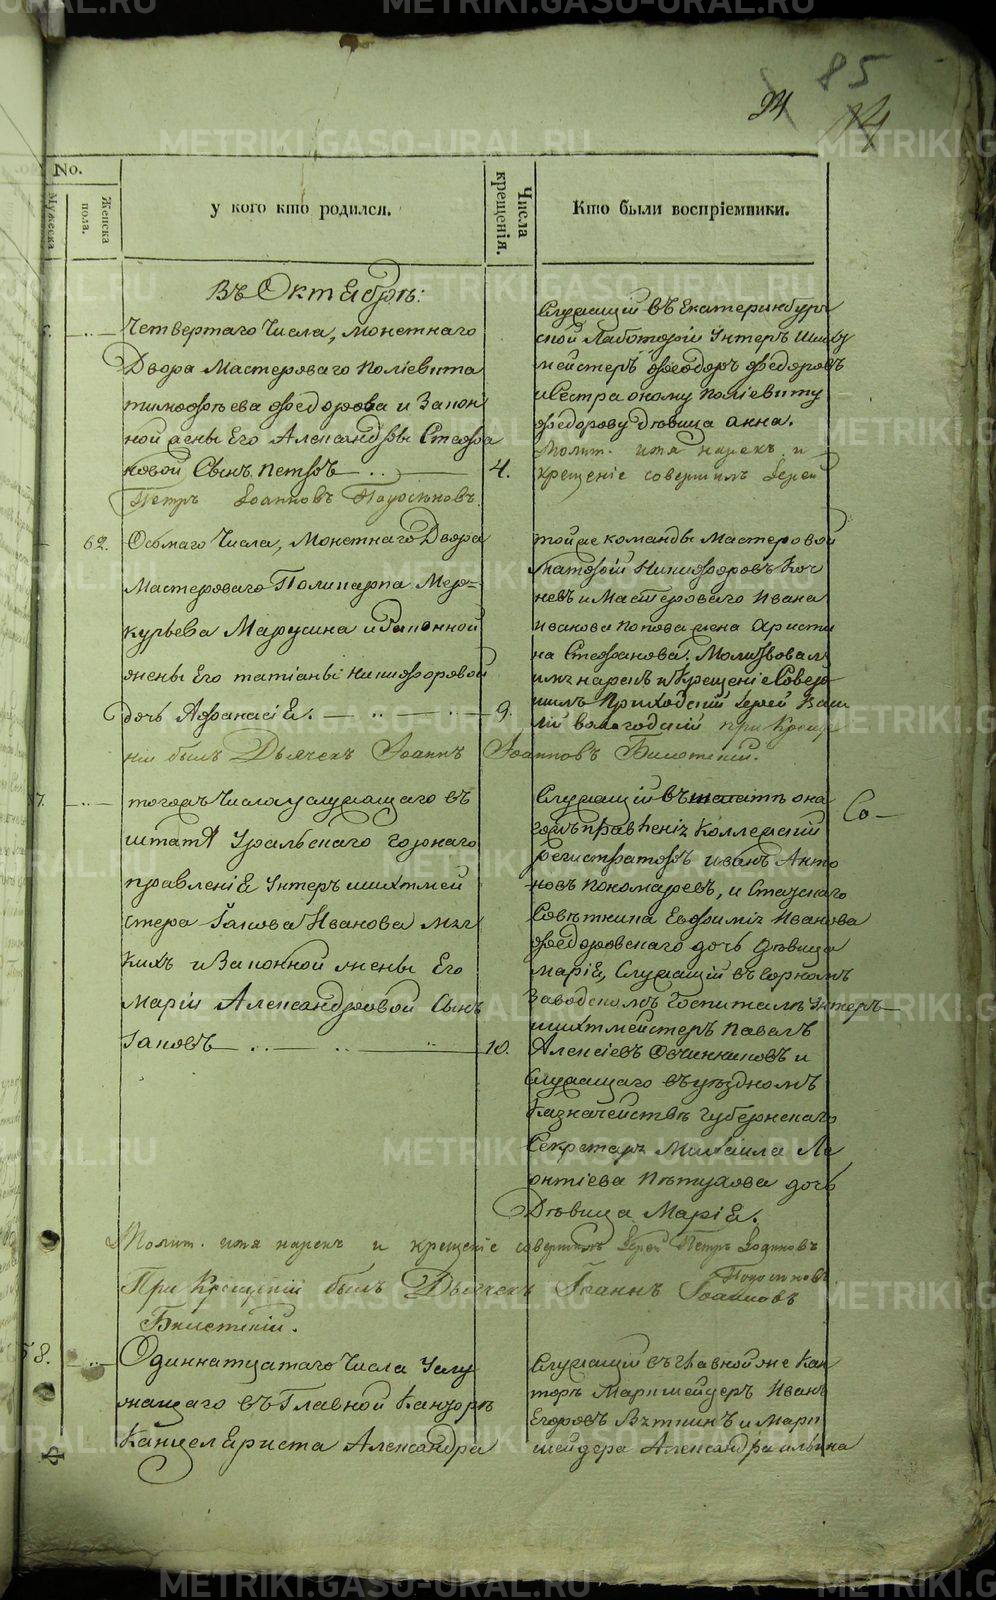 85
No.
Мужеска
Женска
пола.
у кого кто родился.
Числа
крещенія.
Кто были воспріемники.
Въ Октябрѣ:
Четвертаго Числа, монетнаго
Двора Мастероваго Поліевкта
тимофѣева Федорова и Закон
ной жены Его Александры Стефа
новой Сынъ Петръ
4.
Петръ Іоанновъ
Служащій въ Екатеринбург
ской Лаботоріи Унтеръ Шихт
мейстеръ Феодоръ Федоровъ
и Сестра оному Поліевкту
Федорову дѣвица анна.
Молит. имя нарекъ и
крещеніе совершилъ Іерей
62.
Осьмаго Числа, Монетнаго Двора
Мастероваго Поликарпа Мер=
курьева Марусина и Законной
жены Его татіаны Никифоровой
дочь Афанасіе.
9.
той же команды Мастеровой
Никифоровъ Коч
невъ и Мастероваго Ивана
Иванова Попова жена Христи
на Стефанова. Молитвовалъ
имя нарекъ и Крещеніе Совер
шилъ Приходскій Іерей Васи
лій вологодскій при Креще
ніи былъ Дьячекъ Іоаннъ Іоанновъ
7.
тогожъ Числа у служащаго въ
штатѣ Уральскаго Горнаго
правленіе Унтеръ шихтмей
стера Іакова Иванова Мяг
кихъ и Законной жены Его
Маріи Александровой Сынъ
Іаковъ
10.
Служащій въ штатѣ она
гожъ правленія Коллежскій
Регистраторъ иванъ Анто
новъ Пономаревъ, и Статскаго
Совѣтника Евфимія Иванова
Федоровскаго дочь дѣвица
маріе, Служащій въ Горномъ
Заводскомъ Госпиталѣ Унтеръ
шихтмейстеръ Павелъ
Алексіевъ Овчинниковъ и
служащаго въ уѣздномъ
Казначействѣ Губернскаго
Секретаря Михаила Ле
онтіева Пѣтухова дочь
Дѣвица Маріе.
Молит. имя нарекъ и крещеніе совершилъ Іерей Петръ Іоанновъ
При Крещеніи былъ Дьячекъ Іоаннъ Іоанновъ
8.
Одиннатцатаго Числа Услу
жащаго въ Главной Канторѣ
Канцелериста Александра
Служащій въ Главной же Кан
торѣ Маркшейдеръ Иванъ
Егоровъ Вяткинъ и Марк
шейдера Александра ильина
METRIKI.GASO-URAL.RU